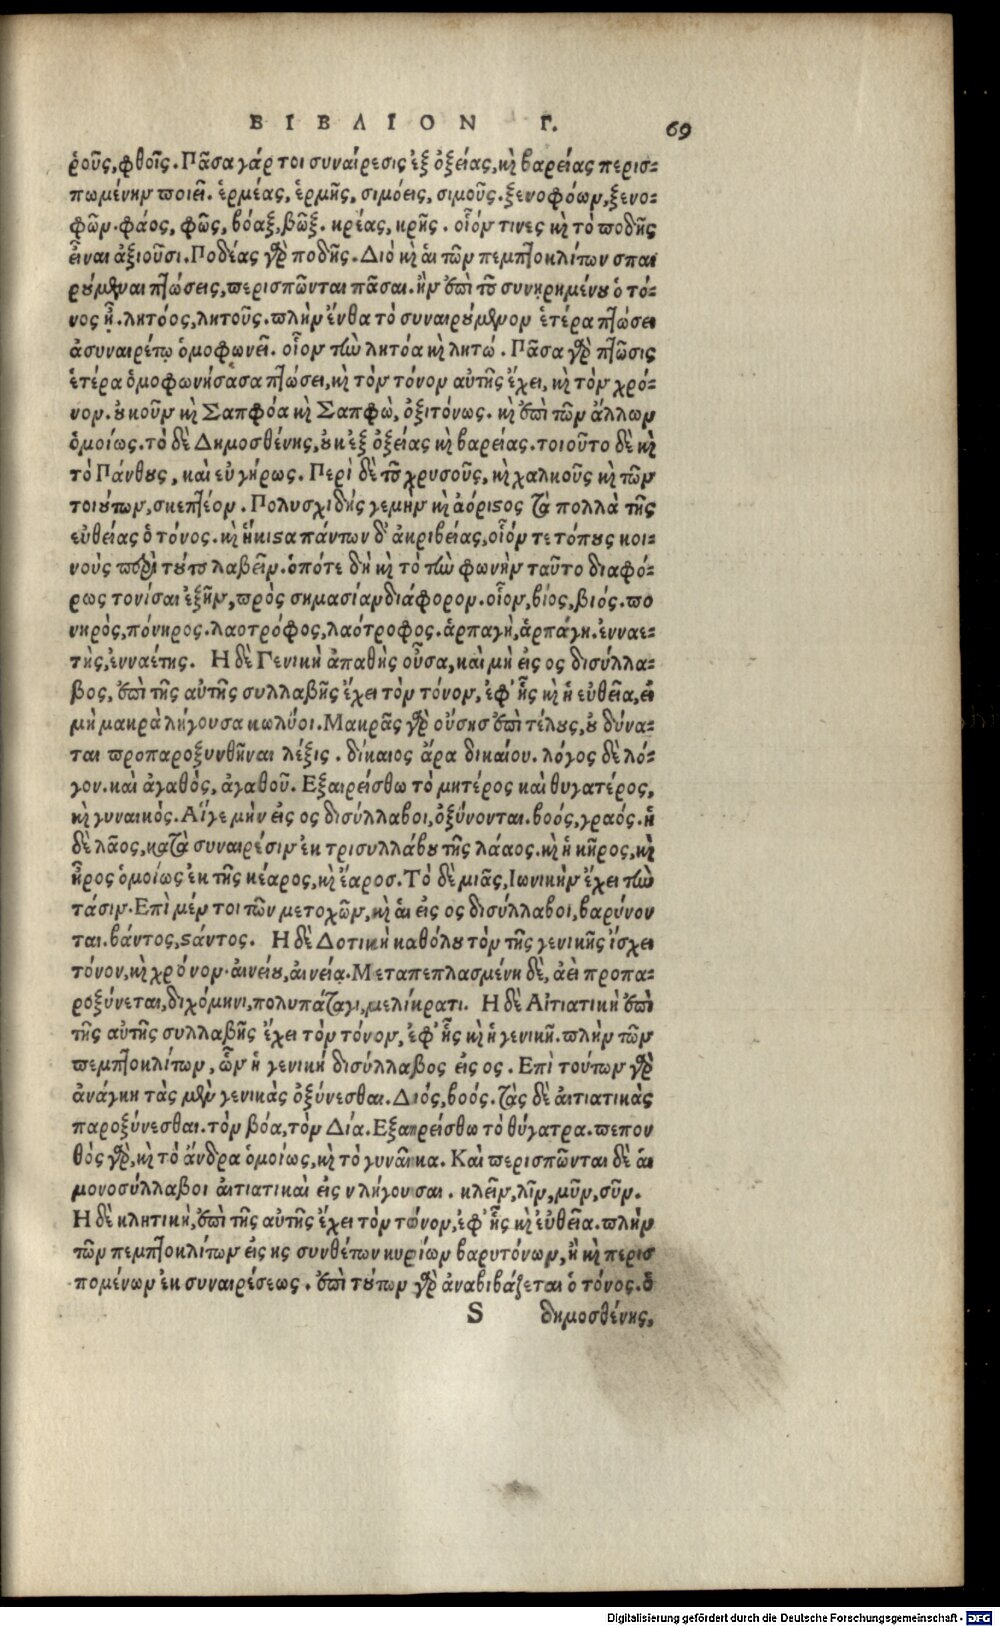 ΒΙΒΛΙΟΝ Γ. 69
ῥοῦς, φθοῖς. Πᾶσα γάρ τοι συναίρεσις ἐξ ὀξείας, κὶ βαρείας περισ-
πωμένην ποιεῖ. ἑρμέας, ἑρμῆς, σιμόεις, σιμοῦς. ξενοφόων, ξενο-
φῶν. φάος, φῶς, βόαξ, βῶξ. κρέας, κρῆς. οἷόν τινες κὶ τὸ ποδῆς
εἶναι ἀξιοῦσι. Ποδέας γὰρ ποδῆς. Διὸ κὶ αἱ τῶν πεμπτοκλίτων σπαι
ρούμεναι πτώσεις, περισπῶνται πᾶσαι. ἢν ἐπὶ τοῦ συνῃρημένου ὁ τό-
νος ᾖ. λητόος, λητοῦς. πλὴν ἔνθα τὸ συναιρούμενον ἑτέρα πτώσει
ἀσυναιρέτῳ ὁμοφωνεῖ. οἷον τὴν λητόα κὶ λητώ. Πᾶσα γὰρ πτῶσις
ἑτέρα ὁμοφωνήσασα πτώσει, κὶ τὸν τόνον αὐτῆς ἔχει, κὶ τὸν χρό-
νον. οὐκοῦν κὶ Σαπφόα κὶ Σαπφὼ, ὀξιτόνως. κὶ ἐπὶ τῶν ἄλλων
ὁμοίως. τὸ δὲ Δημοσθένης, οὐκ ἐξ ὀξείας κὶ βαρείας. τοιοῦτο δὲ κὶ
τὸ Πάνθους, καὶ εὐγήρως. Περὶ δὲ τοῦ χρυσοῦς, κὶ χαλκοῦς κὶ τῶν
τοιούτων, σκεπτέον. Πολυσχιδής γεμὴν κὶ ἀόριστος τὰ πολλὰ τῆς
εὐθείας ὁ τόνος. κὶ ἥκιστα πάντων δι' ἀκριβείας, οἷόν τε τόπους κοι-
νοὺς περὶ τούτου λαβεῖν. ὁπότε δὴ κὶ τὸ τὴν φωνὴν ταὐτο διαφό-
ρως τονίσαι ἐξῆν, πρὸς σημασίαν διάφορον. οἷον, βίος, βιός. πο
νηρὸς, πόνηρος. λαοτρόφος, λαότροφος. ἁρπαγὴ, ἁρπάγη. ἐνναε-
τὴς, ἐνναέτης. Η δὲ Γενικὴ ἀπαθὴς οὖσα, καὶ μὴ εἰς ος δισύλλα-
βος, ἐπὶ τῆς αὐτῆς συλλαβῆς ἔχει τὸν τόνον, ἐφ' ἧς κὶ ἡ εὐθεῖα, εἰ
μὴ μακρὰ λήγουσα κωλύοι. Μακρᾶς γὰρ οὔσης ἐπὶ τέλους, οὐ δύνα-
ται προπαροξυνθῆναι λέξις. δίκαιος ἄρα δικαίου. λόγος δὲ λό-
γου. καὶ ἀγαθὸς, ἀγαθοῦ. Εξαιρείσθω τὸ μητέρος καὶ θυγατέρος,
κὶ γυναικός. Αἵγε μὴν εἰς ος δισύλλαβοι, ὀξύνονται. βοός, γραός. ἡ
δὲ λᾶος, κατὰ συναιρέσιν ἐκ τρισυλλάβου τῆς λάαος. κὶ ἡ κῆρος, κὶ
ἦρος ὁμοίως ἐκ τῆς κέαρος, κὶ ἔαρος. Τὸ δὲ μιᾶς, Ιωνικὴν ἔχει τὴν
τάσιν. Επὶ μέν τοι τῶν μετοχῶν, κὶ αἱ εἰς ος δισύλλαβοι, βαρύνον
ται. βάντος, στάντος. Η δὲ Δοτικὴ καθόλου τὸν τῆς γενικῆς ἴσχει
τόνον, κὶ χρόνον. αἰνείου, αἰνείᾳ. Μεταπεπλασμένη δὲ, ἀεὶ προπα-
ροξύνεται, διχόμηνι, πολυπάταγι, μελίκρατι. Η δὲ Αἰτιατικὴ ἐπὶ
τῆς αὐτῆς συλλαβῆς ἔχει τὸν τόνον, ἐφ' ἧς κὶ ἡ γενικῆ. πλὴν τῶν
πεμπτοκλίτων, ὧν ἡ γενικὴ δισύλλαβος εἰς ος. Επὶ τούτων γὰρ
ἀνάγκη τὰς μὲν γενικὰς ὀξύνεσθαι. Διός, βοός. τὰς δὲ αἰτιατικὰς
παροξύνεσθαι. τὸν βόα, τὸν Δία. Εξαιρείσθω τὸ θύγατρα. πεπον
θὸς γὰρ, κὶ τὸ ἄνδρα ὁμοίως, κὶ τὸ γυναῖκα. Καὶ περισπῶνται δὲ αἱ
μονοσύλλαβοι αἰτιατικαὶ εἰς ν λήγουσαι. κλεῖν, λῖν, μῦν, σῦν.
Η δὲ κλητικὴ, ἐπὶ τῆς αὐτῆς ἔχει τὸν τόνον, ἐφ' ἧς κὶ εὐθεῖα. πλὴν
τῶν πεμπτοκλίτων εἰς κς συνθέτων κυρίων βαρυτόνων, ἢ κὶ περισ
πομένων ἐκ συναιρέσεως. ἐπὶ τούτων γὰρ ἀναβιβάζεται ὁ τόνος. ὁ
S δημοσθένης,
Digitalisierung gefördert durch die Deutsche Forschungsgemeinschaft - DFG